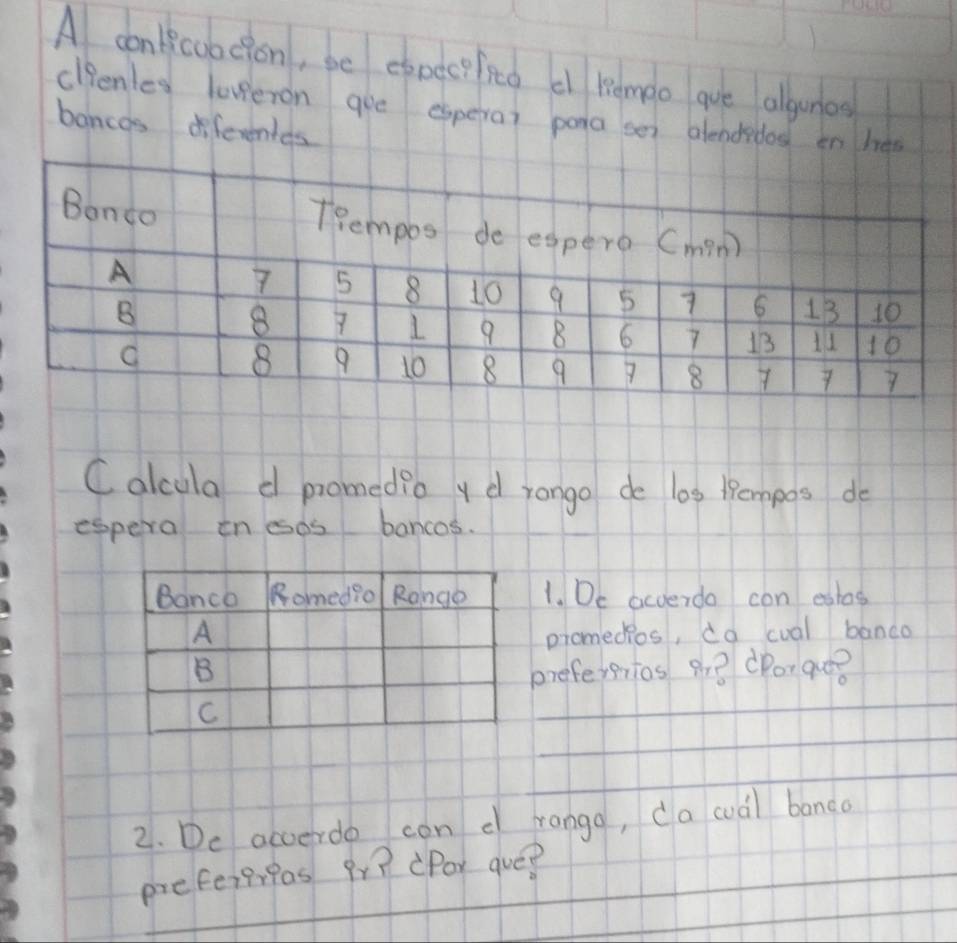 A continuación, se especifica el tiempo que algunos
clientes tuvieron que esperar para ser atendidos en tres
bancos diferentes
Banco Tiempos de espera (min)
A 7 5 8 10 9 5 7 6 13 10
B 8 7 1 9 8 6 7 13 11 10
C 8 9 10 8 9 7 8 7 7 7
Calcula el promedio y el rango de los tiempos de
espera en esos bancos.
Banco Promedio Rango
A
B
C
1. De acuerdo con estos
promedios, ¿a cual banco
preferirias ir? ¿Porque?
2. De acuerdo con el rango, ¿a cuál banco
preferirias ir? ¿Por qué?